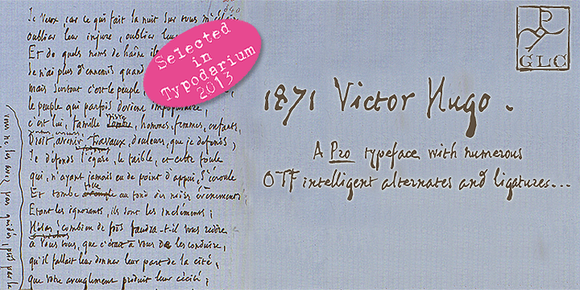 Je veux, car ce qui fait la nuit sur vous
oublier leur injure, oublier leur
Et de quels noms de haine ils
Je n'ai plus d'ennemis quand
mais surtout c'est le peuple
le peuple qui parfois devient impopulaire,
c'est lui, famille triste, hommes, femmes, enfants,
Droit, avenir, travaux, douleurs, que je défends;
Je défends l'égaré, le faible, et cette foule
qui, n'ayant jamais eu de point d'appui, s'écroule
Et tombe folle au fond des noirs événements
Etant les ignorants, ils sont les incléments;
Hélas! combien de fois faudra-t-il vous redire
à vous tous, que c'était à vous de les conduire,
qu'il fallait leur donner leur part de la cité,
que votre aveuglement produit leur cécité;
Selected
in
Typodarium
2013
P
GLC
1871 Victor Hugo.
A Pro typeface with numerous
OTF intelligent alternates and ligatures...